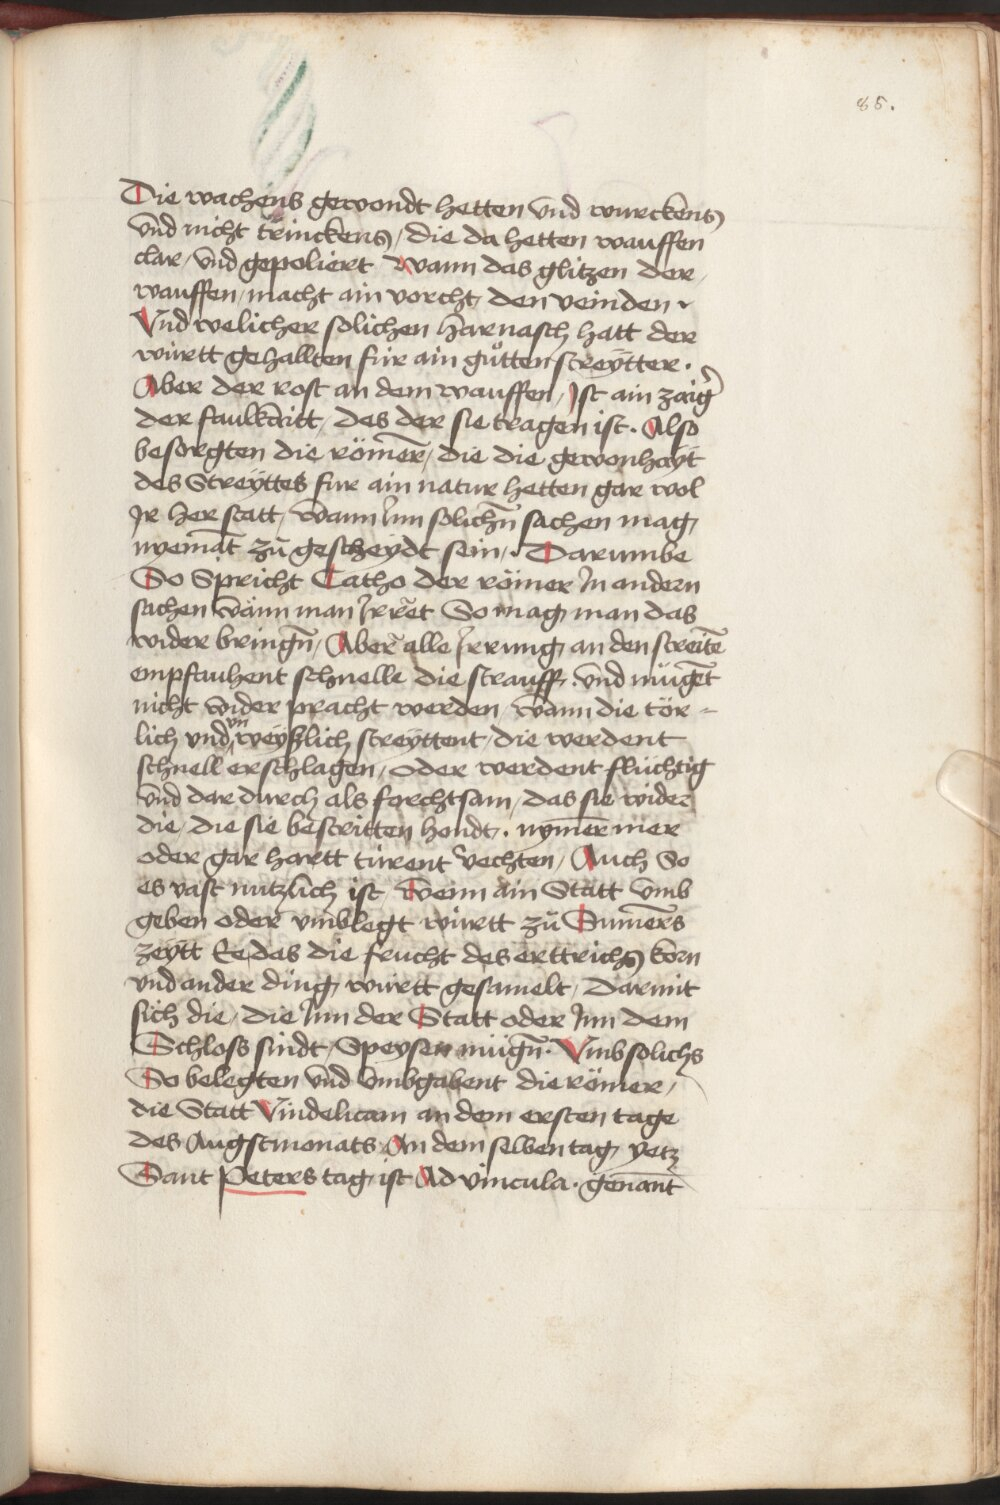 85.
Die wachens gewondt hetten vnd wurckens
vnd nicht trinckens / die da hetten wauffen
clar / vnd gepoliert Wann das glitzen der
wauffen / macht ain vorcht den veinden .
Vnd welicher solichen harnasch hatt der
württ gehallten für ain guͦtten streÿtter .
Aber der rost an dem wauffen / Jst ain zaig̉
der faulkaitt / des der sie tragen ist . Also
besorgten die röm̄er / die die gewonhaÿt
des Streÿttes fur ain natur hetten gar wol
Jr her statt / wann Jnn solichn̄ sachen mag
nyemāt zů gescheydt sein . Darumbe
So Spricht Catho der römer Jn andern
sachen wann man Jrret So mag man das
wider bringn̄ / Aber alle Jrrung an den streitē
empfauhent schnelle die strauff . vnd mügēt
nicht wider pracht werden / wann die tör -
lich vnd vn weÿßlich streÿttent / die werdent
schnell erschlagen / oder werdent flüchtig
vnd dar durch als forchtsam / das sie wider
die / die sie bestritten hondt . nym̄er mer
oder gar hartt türent vechten / Auch So
es vast nutzlich ist / Wenn ain Statt vmb
geben oder vmblegt württ zů Sum̄ers
zeÿtt Ee das die frucht des erttrichs korn
vnd ander ding württ gesamelt / Darmit
sich die / die Jnn der Statt oder Jnn dem
Schloss sindt / Speysen mügn̄ . Vmb solichs
So belegten vnd vmbgabent die römer /
die Statt Vindelicam an dem ersten tage
des Augstmonats An dem selben tag yetz
Sant Peters tag ist Ad vincula . genant